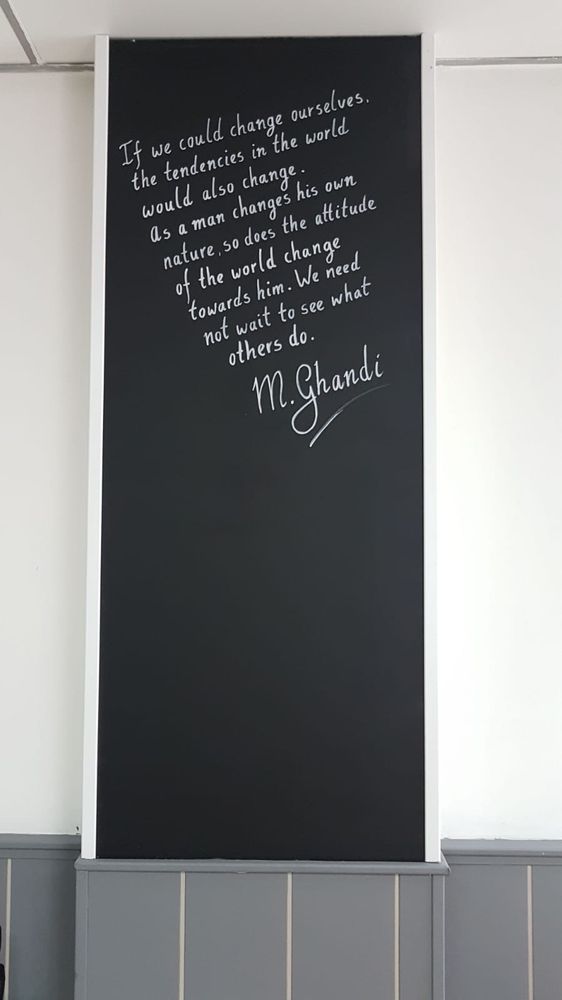 If we could change ourselves,
the tendencies in the world
would also change.
As a man changes his own
nature, so does the attitude
of the world change
towards him. We need
not wait to see what
others do.
M. Ghandi